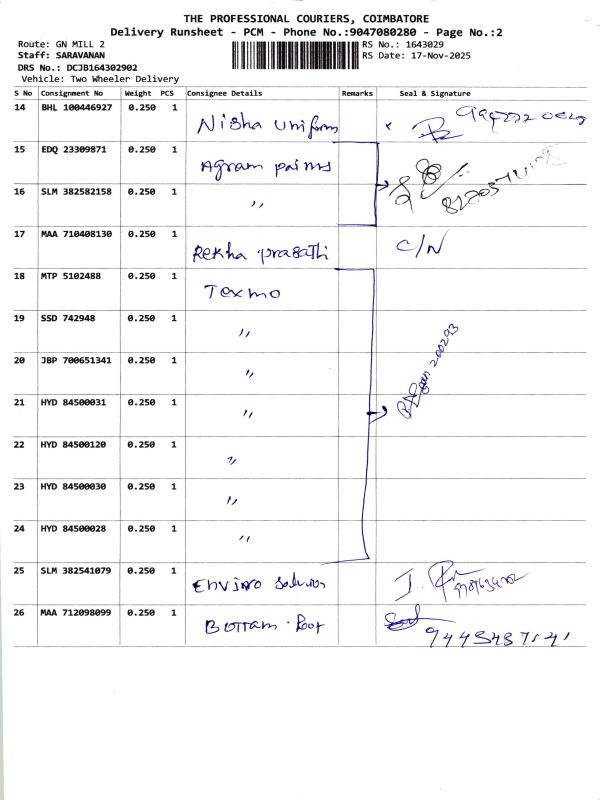 THE PROFESSIONAL COURIERS, COIMBATORE
Delivery Runsheet - PCM - Phone No.:9047080280 - Page No.:2
Route: GN MILL 2
RS No.: 1643029
Staff: SARAVANAN
RS Date: 17-Nov-2025
DRS No.: DCJB164302902
Vehicle: Two Wheeler Delivery
S No Consignment No Weight PCS Consignee Details Remarks Seal & Signature
14 BHL 100446927 0.250 1 Nisha uniform
15 EDQ 23309871 0.250 1 Agram paints
16 SLM 382582158 0.250 1 〃
17 MAA 710408130 0.250 1 Rekha prasathi C/N
18 MTP 5102488 0.250 1 Texmo
19 SSD 742948 0.250 1 〃
20 JBP 700651341 0.250 1 〃
21 HYD 84500031 0.250 1 〃 200293
22 HYD 84500120 0.250 1 〃
23 HYD 84500030 0.250 1 〃
24 HYD 84500028 0.250 1 〃
25 SLM 382541079 0.250 1 Enviro
26 MAA 712098099 0.250 1 9445437141